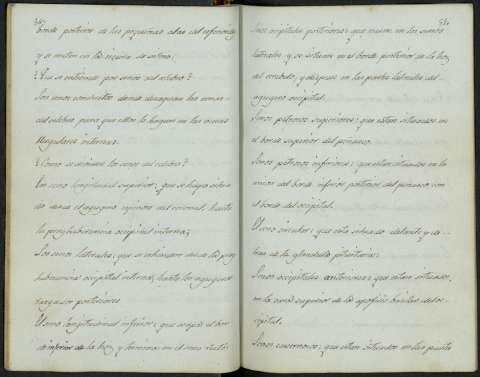 borde posterior de las pequeñas alas del esfenoides
y se meten en la
¿Que se entiende por senos del celebro?
Son unos conductos donde desaguan las venas
del celebro para que estos lo hagan en las venas
Yugulares internas.
¿Como se dividen los senos del celebro?
En seno longitudinal superior; que se halla situa-
do desde el agugero espinoso del coronal, hasta
la protuberancia occipital interna;
Los senos laterales; que se estienden desde la pro-
tuberancia occipital interna, hasta los agugeros
rasgados posteriores
El seno longitudinal inferior; que ocupa el bor-
de inferior de la hoz, y termina en el seno recto.
Senos occipitales posteriores; que nacen en los senos
laterales, y se situan en el borde posterior de la hoz
del cerebelo, y despues en las partes laterales del
agugero occipital.
Senos petrosos superiores; que estan situados en
el borde superior del peñasco.
Senos petrosos inferiores; que estan situados en la
union del borde inferior posterior del peñasco con
el borde del occipital.
El seno circular; que esta situado delante y de-
tras de la glandula pituitaria;
Senos occipitales anteriores; que estan situados
en la cara superior de la apofisis basilar del oc-
cipital.
Senos cavernosos; que estan situados en las partes